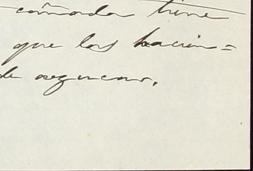 cañada tiene
que los hacien=
de azucar.